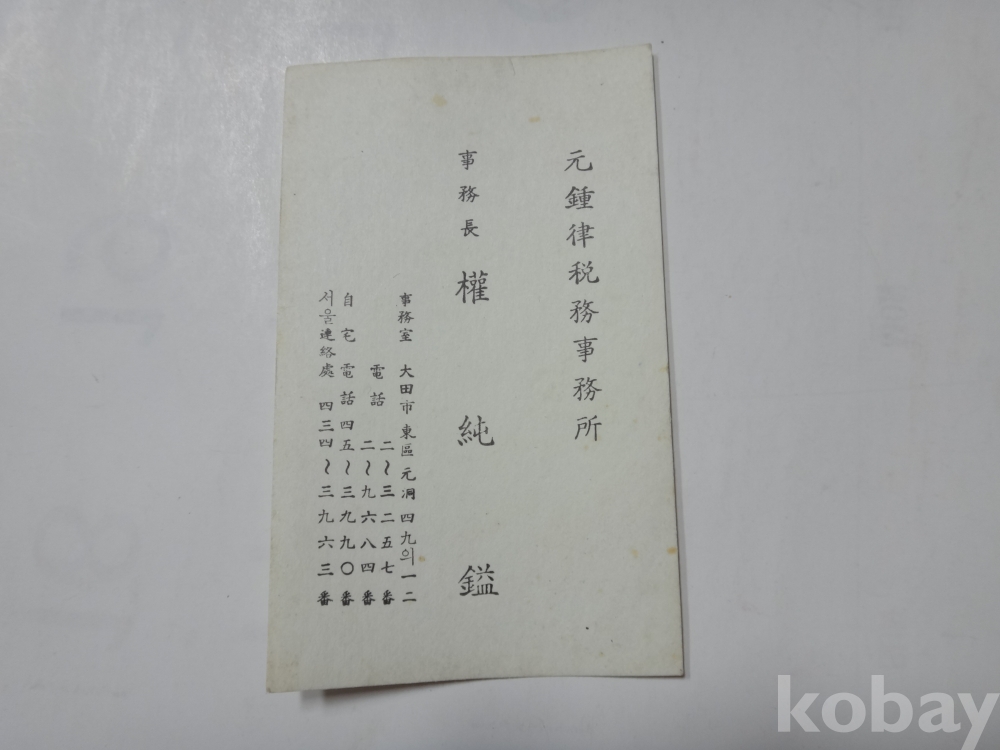 元鍾律税務事務所
事務長 權純鎰
事務室 大田市東區元洞四九의一二
電話 二~三二五七番
二~九六八四番
自宅電話四五~三九九〇番
서울連絡處 四三四~三九六三番
kobay